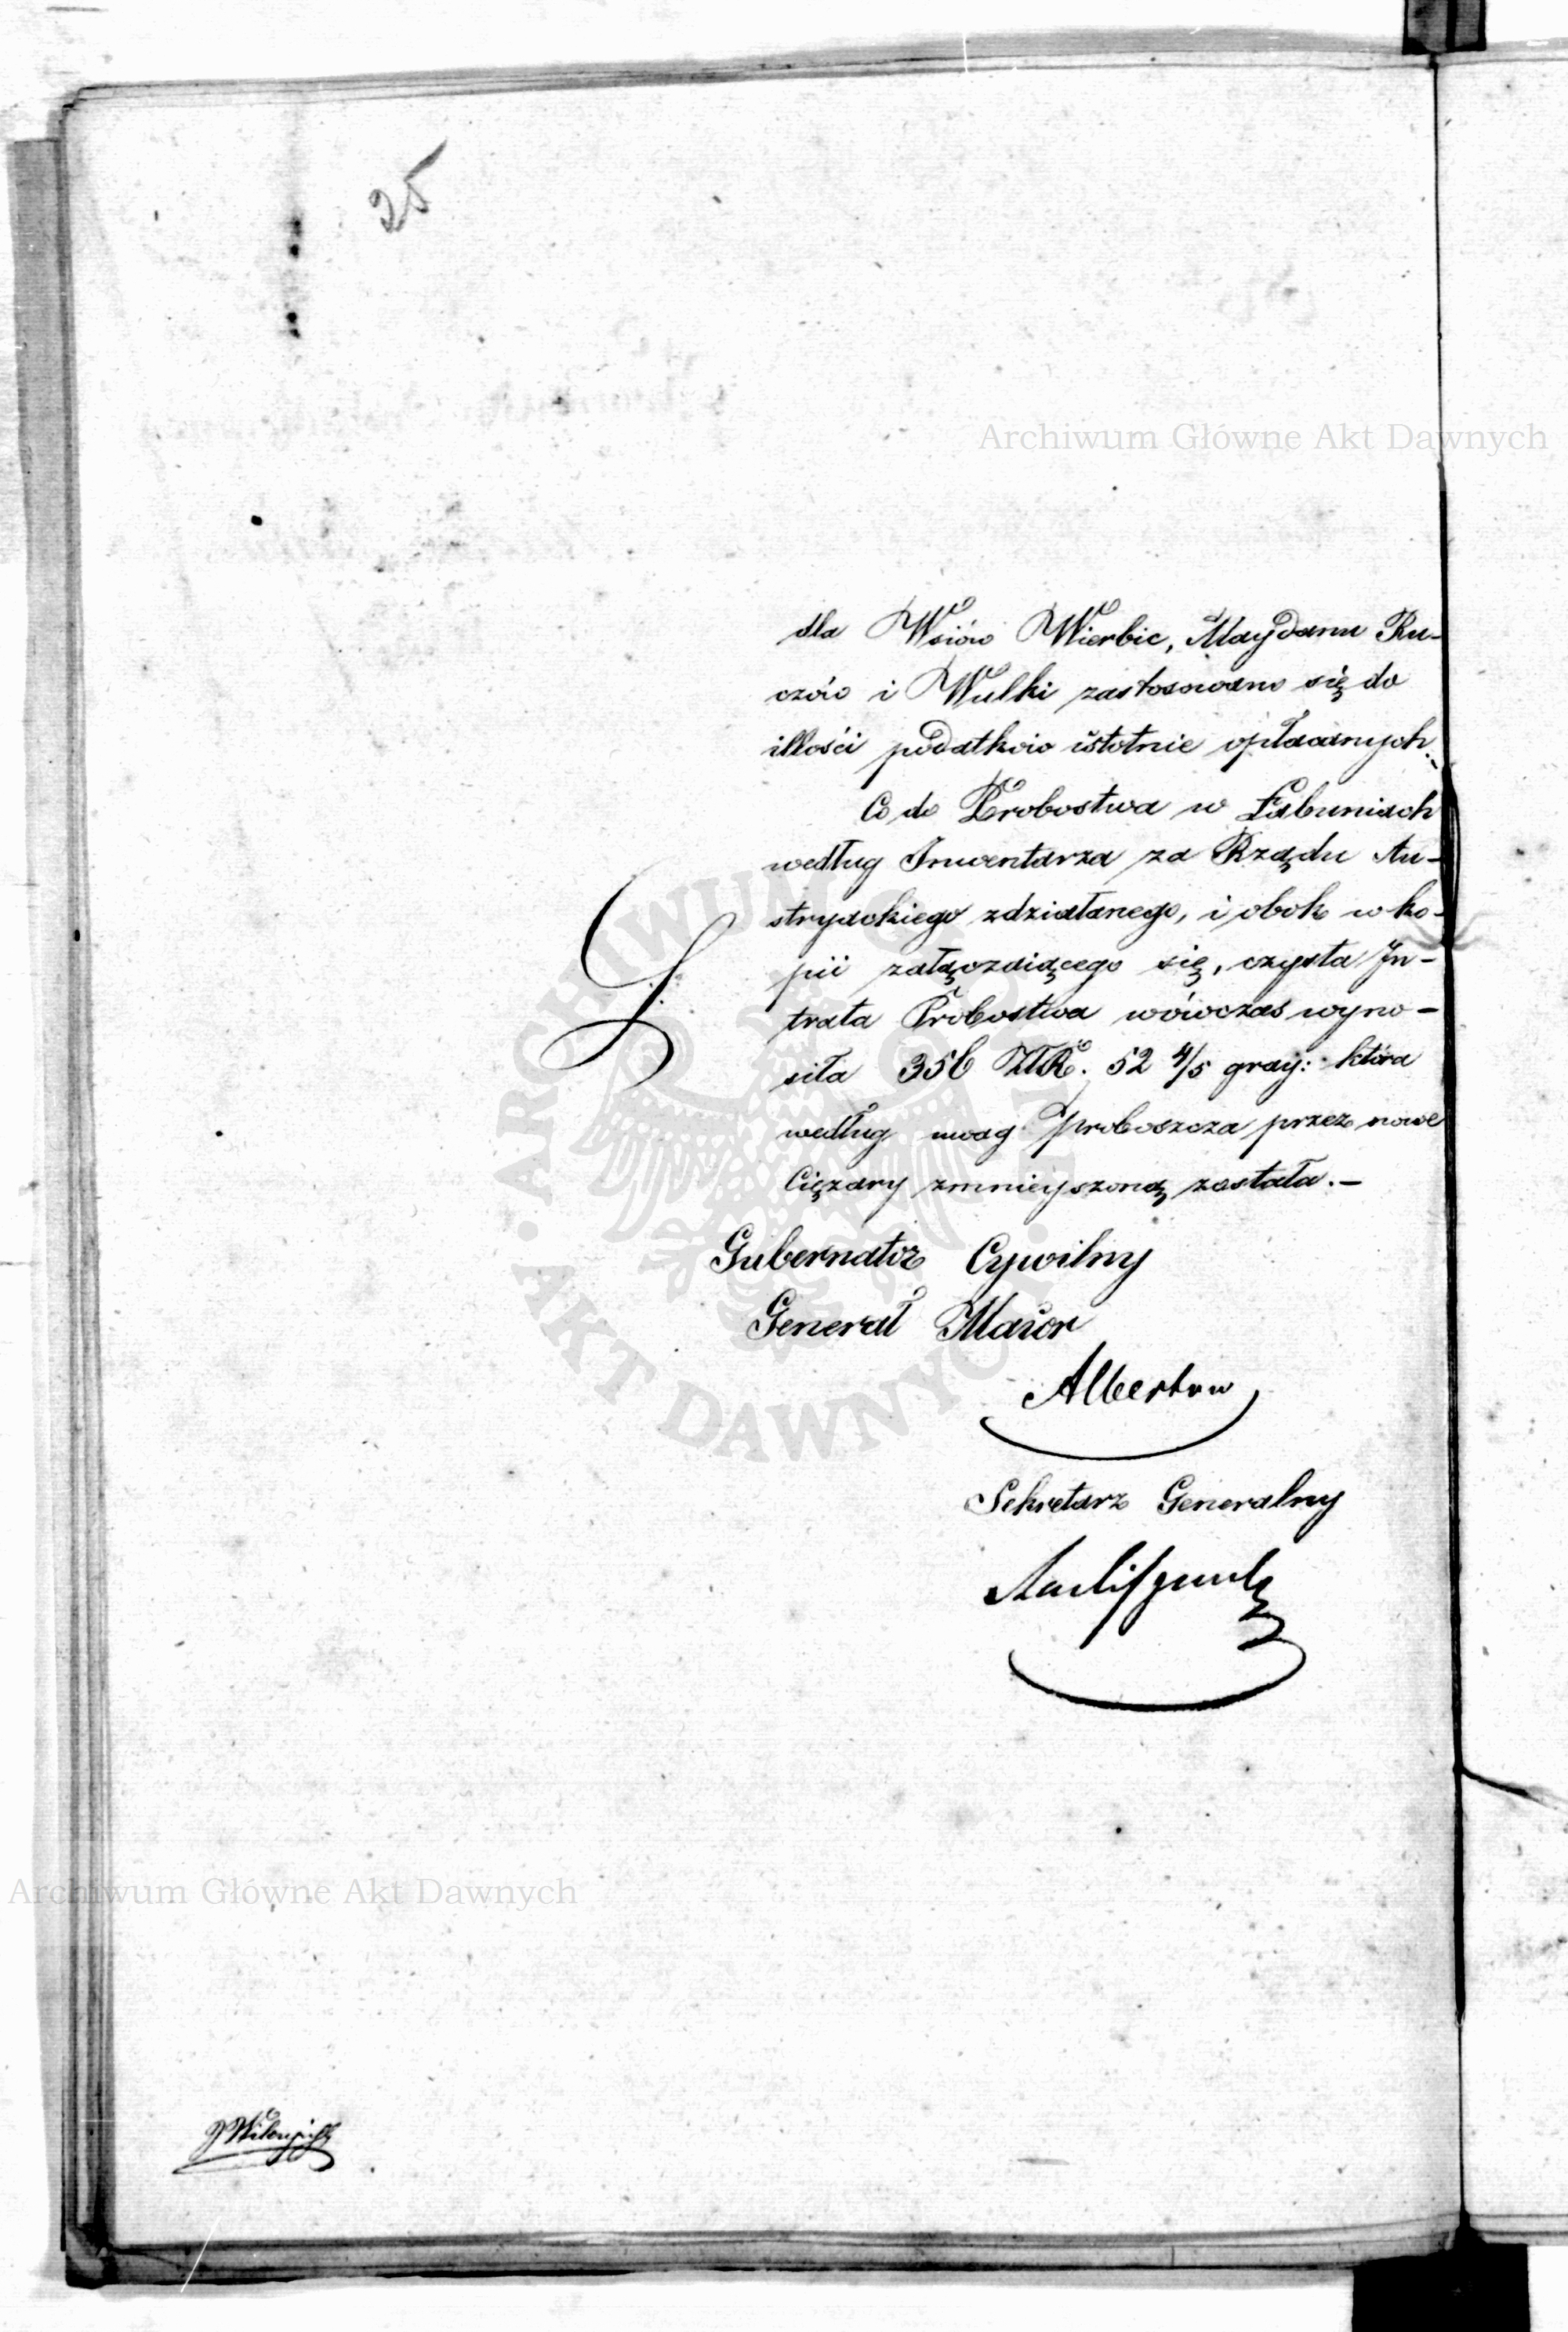 25
Archiwum Główne Akt Dawnych
dla Wsiów Wierbic, Maydanu Ru-
czów i Wulki zastosowano się do
illości podatków istotnie opłacanych.
Co do Probostwa w Łabuniach
według Inwentarza za Rządu Au-
stryackiego zdziałanego, i obok w ko-
pii załączaiącego się, czysta In-
trata Probostwa wówczas wyno-
siła 356 ZłR. 52 4/5 gray: która
według uwag Proboszcza przez nowe
Ciężary zmnieyszoną została.—
ARCHIWUM GŁÓWNE AKT DAWNYCH
Gubernator Cywilny
Generał Maior
Albertow
Sekretarz Generalny
Archiwum Główne Akt Dawnych